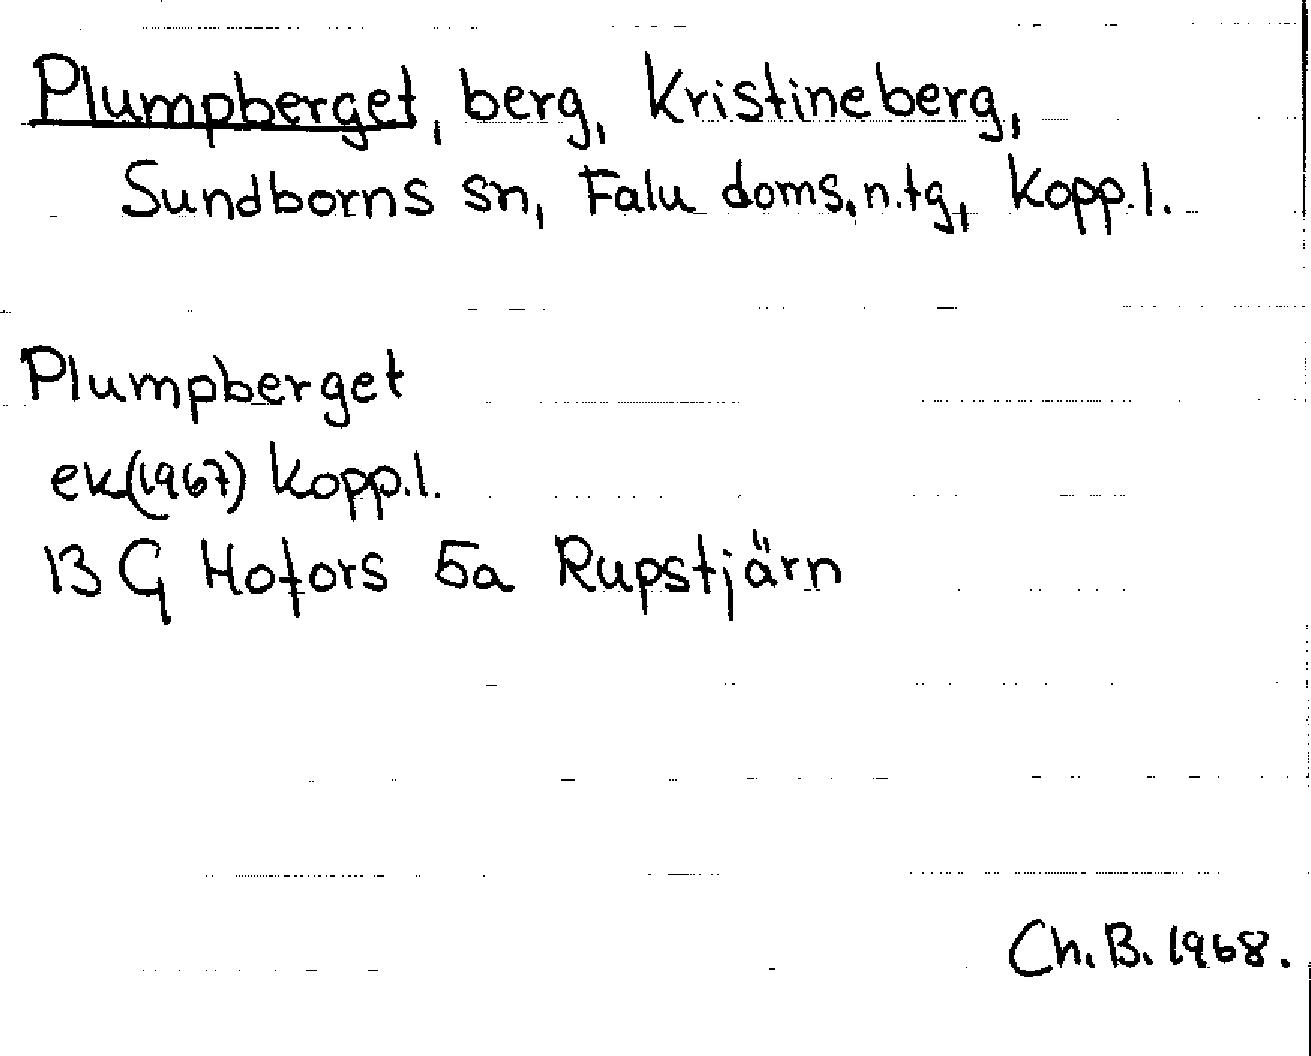 Plumpberget, berg, Kristineberg,
Sundborns sn, Falu doms.n.tg, Kopp.l.
Plumpberget
ek(1967) Kopp.l.
13 G Hofors 5a Rupstjärn
Ch. B. 1968.